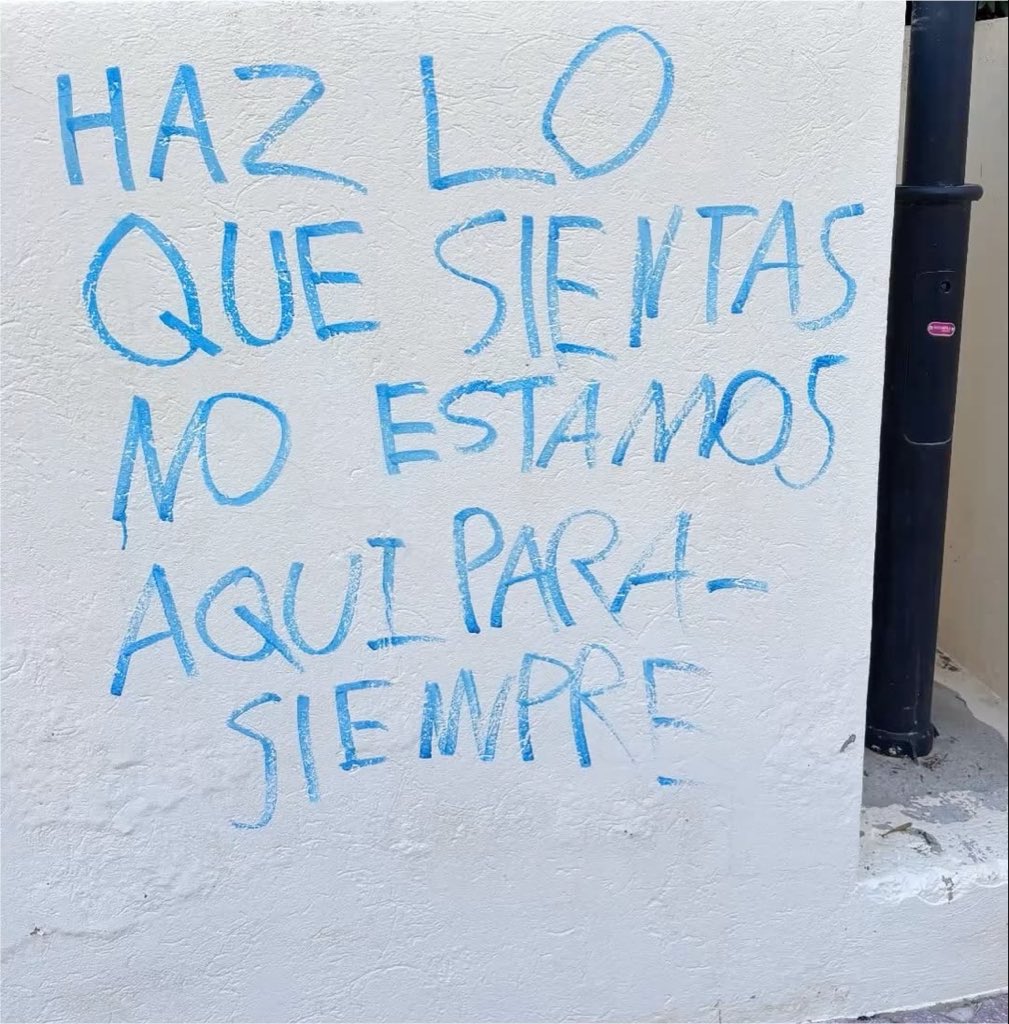 HAZ LO
QUE SIENTAS
NO ESTAMOS
AQUI PARA-
SIEMPRE